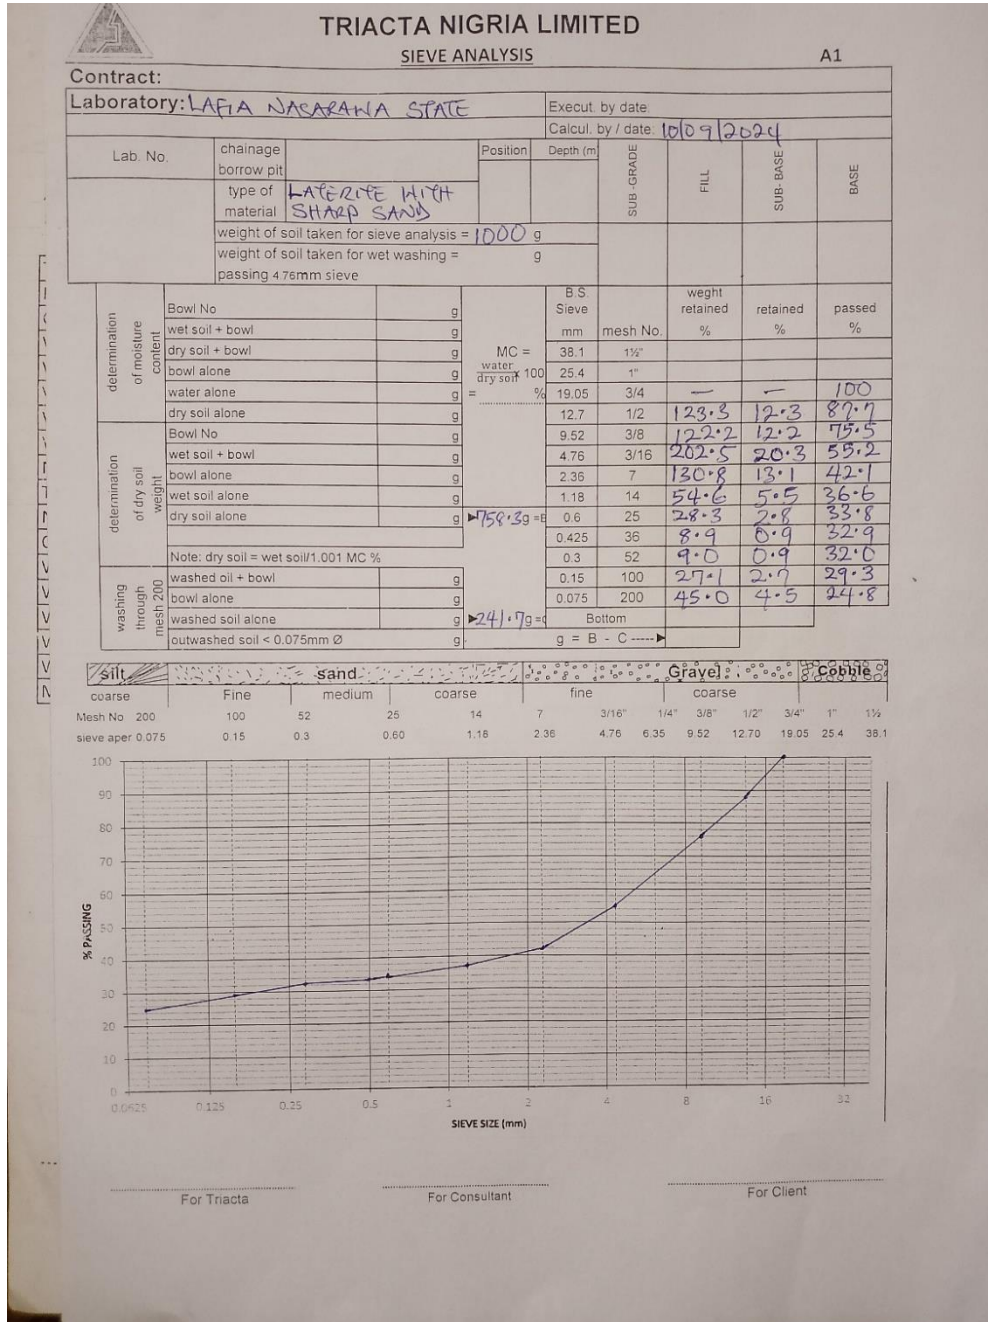 TRIACTA NIGRIA LIMITED
SIEVE ANALYSIS A1
Contract:
Laboratory: LAFIA NASARAWA STATE Execut. by date:
Calcul. by / date: 10/09/2024
Lab. No. chainage Position Depth (m SUB -GRADE FILL SUB- BASE BASE
borrow pit
type of LATERITE WITH
material SHARP SAND
weight of soil taken for sieve analysis = 1000 g
weight of soil taken for wet washing = g
passing 4.76mm sieve
determination of moisture content
Bowl No g
wet soil + bowl g
dry soil + bowl g
bowl alone g
water alone g
dry soil alone g
MC =
water
dry soil x 100
= %
determination of dry soil weight
Bowl No g
wet soil + bowl g
bowl alone g
wet soil alone g
dry soil alone g 758.3g =B
Note: dry soil = wet soil/1.001 MC %
washing through mesh 200
washed oil + bowl g
bowl alone g
washed soil alone g 241.7g =
outwashed soil < 0.075mm Ø g
B.S. weght
Sieve retained retained passed
mm mesh No. % % %
38.1 1½"
25.4 1"
19.05 3/4 — — 100
12.7 1/2 123.3 12.3 87.7
9.52 3/8 122.2 12.2 75.5
4.76 3/16 202.5 20.3 55.2
2.36 7 130.8 13.1 42.1
1.18 14 54.6 5.5 36.6
0.6 25 28.3 2.8 33.8
0.425 36 8.9 0.9 32.9
0.3 52 9.0 0.9 32.0
0.15 100 27.1 2.7 29.3
0.075 200 45.0 4.5 24.8
Bottom
g = B - C -----
silt sand Gravel Cobble
coarse Fine medium coarse fine coarse
Mesh No 200 100 52 25 14 7 3/16" 1/4" 3/8" 1/2" 3/4" 1" 1½
sieve aper 0.075 0.15 0.3 0.60 1.18 2.36 4.76 6.35 9.52 12.70 19.05 25.4 38.1
100
90
80
70
60
50
40
30
20
10
0
% PASSING
0.0625 0.125 0.25 0.5 1 2 4 8 16 32
SIEVE SIZE (mm)
For Triacta For Consultant For Client